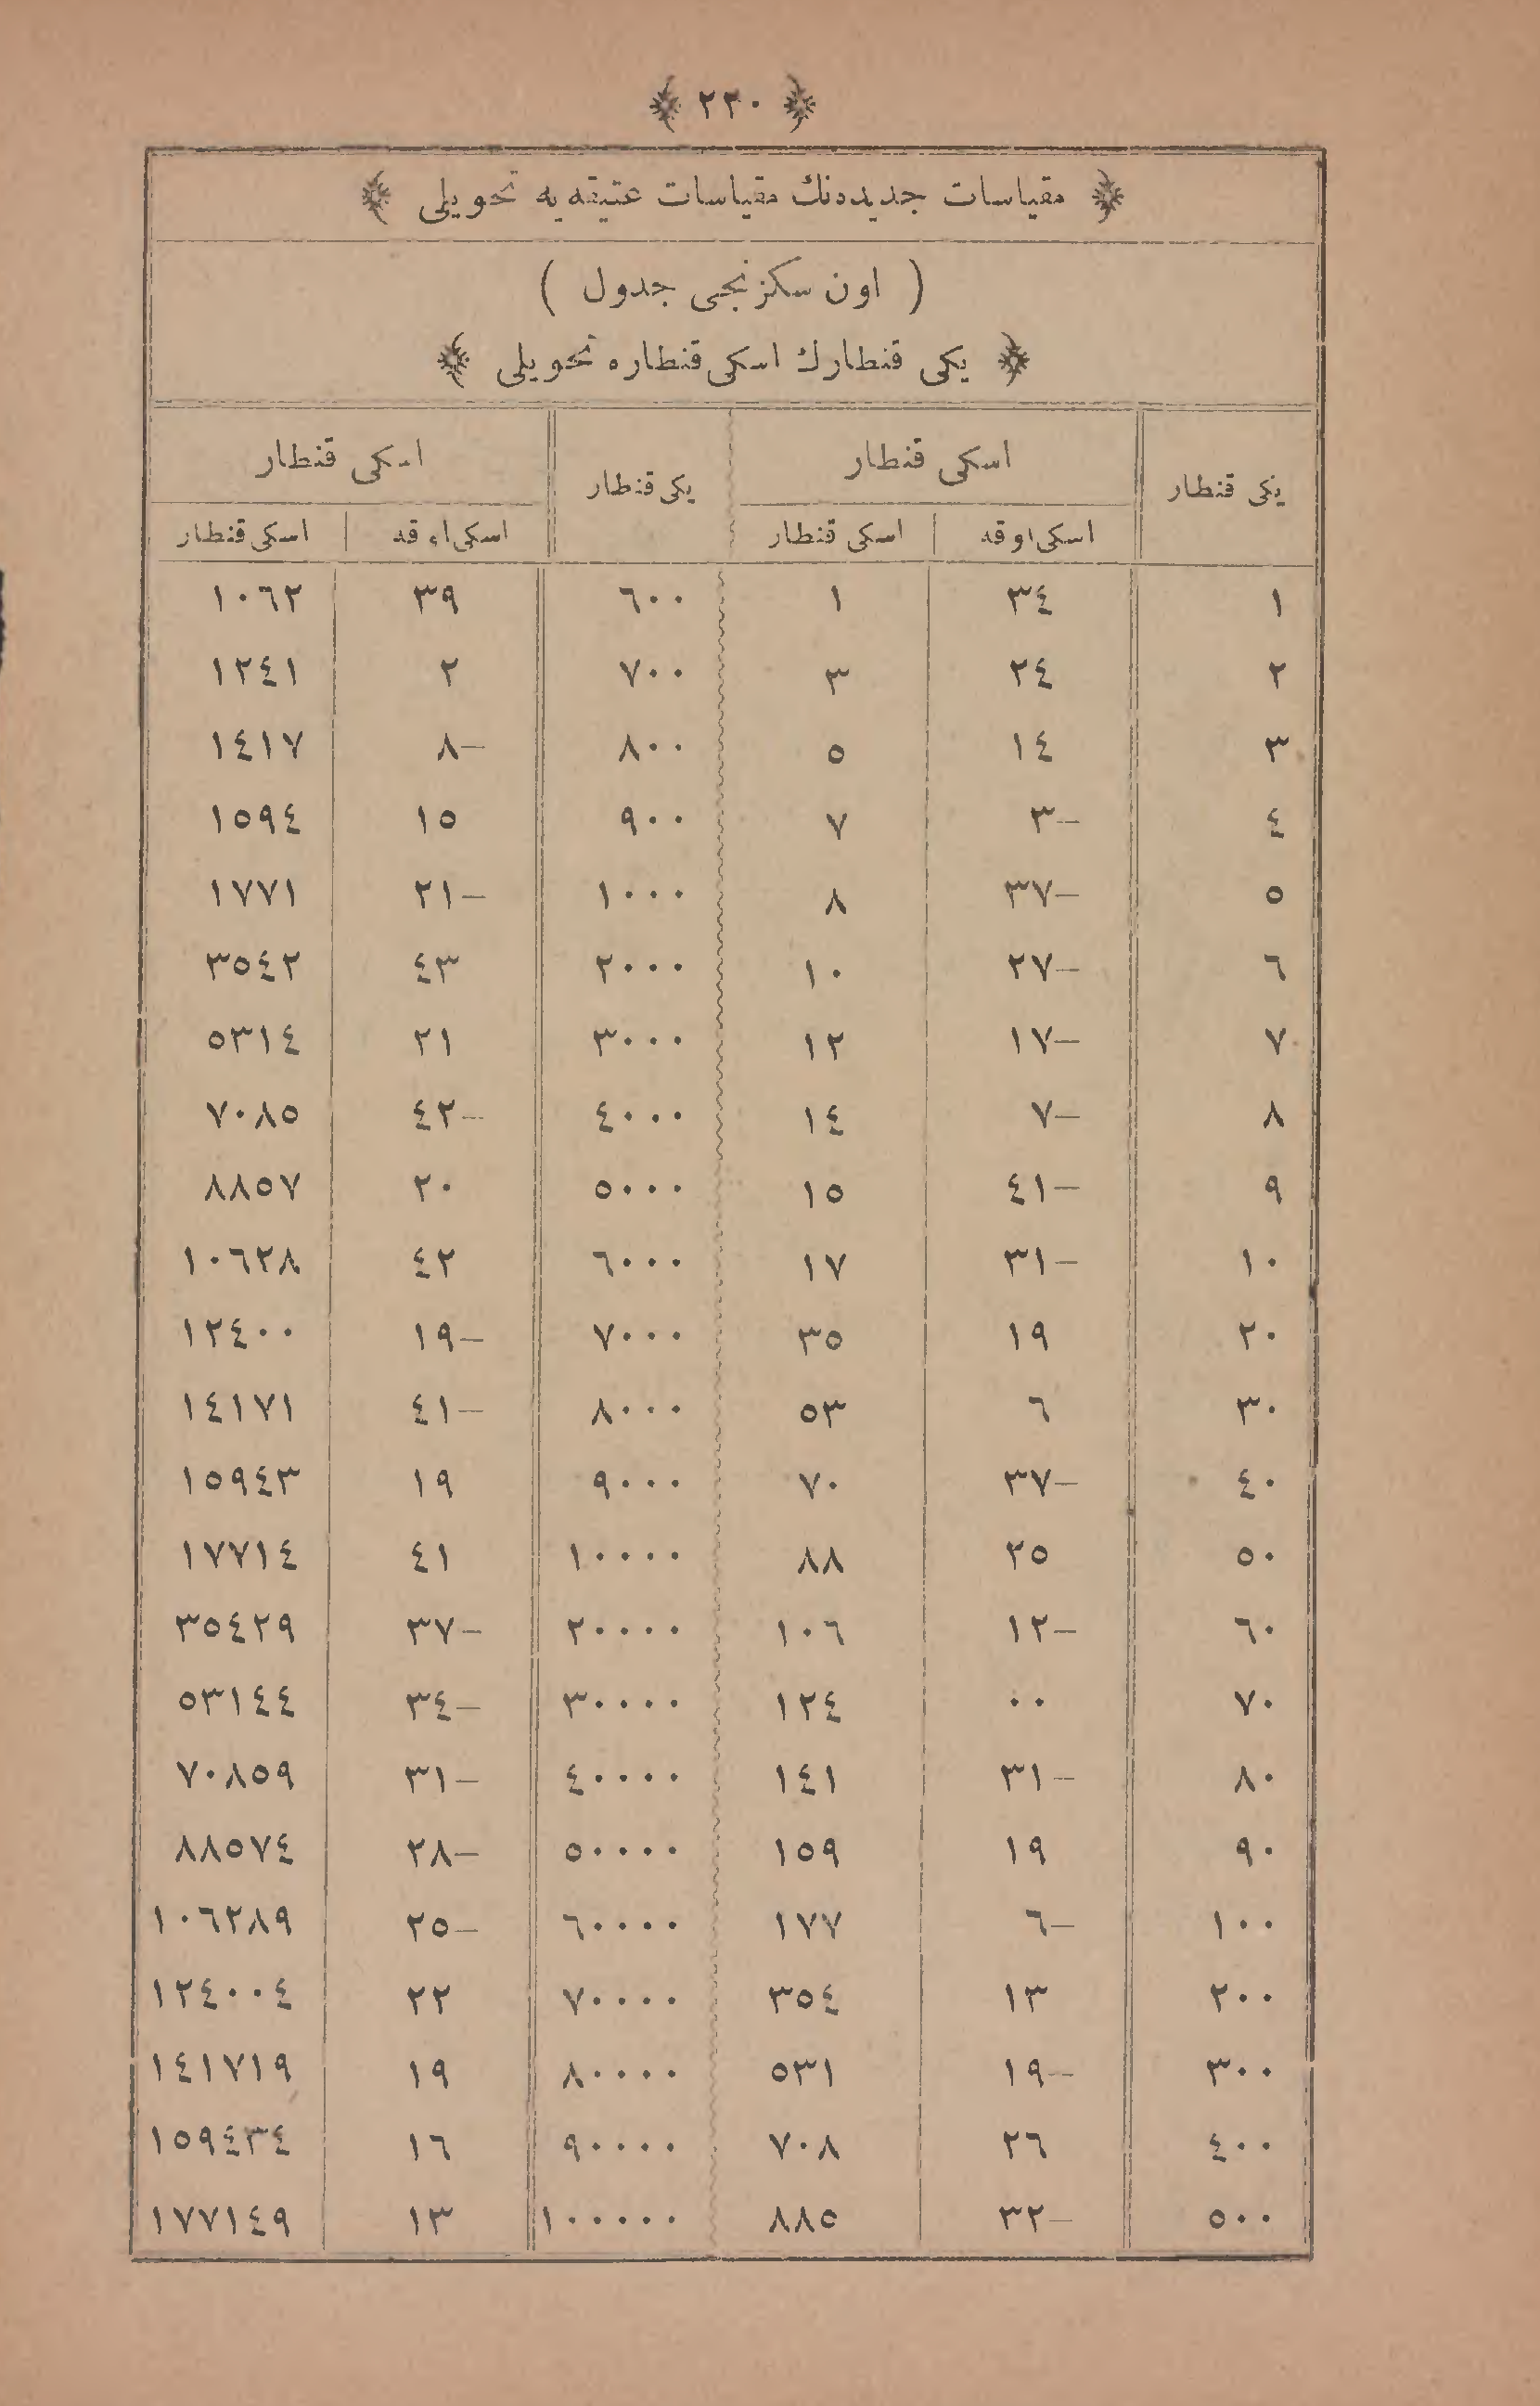 ٢٢٠
مقياسات جديده‌نك مقياسات عتيقه‌يه تحويلى
( اون سكزنجى جدول )
يكى قنطارك اسكى قنطاره تحويلى
يكى قنطار اسكى قنطار يكى قنطار اسكى قنطار
اسكى اوقه اسكى قنطار اسكى اوقه اسكى قنطار
١ ٣٤ ١ ٦٠٠ ٣٩ ١٠٦٢
٢ ٢٤ ٣ ٧٠٠ ٢ ١٢٤١
٣ ١٤ ٥ ٨٠٠ ٨– ١٤١٧
٤ ٣– ٧ ٩٠٠ ١٥ ١٥٩٤
٥ ٣٧– ٨ ١٠٠٠ ٢١– ١٧٧١
٦ ٢٧– ١٠ ٢٠٠٠ ٤٣ ٣٥٤٢
٧ ١٧– ١٢ ٣٠٠٠ ٢١ ٥٣١٤
٨ ٧– ١٤ ٤٠٠٠ ٤٢– ٧٠٨٥
٩ ٤١– ١٥ ٥٠٠٠ ٢٠ ٨٨٥٧
١٠ ٣١– ١٧ ٦٠٠٠ ٤٢ ١٠٦٢٨
٢٠ ١٩ ٣٥ ٧٠٠٠ ١٩– ١٢٤٠٠
٣٠ ٦ ٥٣ ٨٠٠٠ ٤١– ١٤١٧١
٤٠ ٣٧– ٧٠ ٩٠٠٠ ١٩ ١٥٩٤٣
٥٠ ٢٥ ٨٨ ١٠٠٠٠ ٤١ ١٧٧١٤
٦٠ ١٢– ١٠٦ ٢٠٠٠٠ ٣٧– ٣٥٤٢٩
٧٠ ٠٠ ١٢٤ ٣٠٠٠٠ ٣٤– ٥٣١٤٤
٨٠ ٣١– ١٤١ ٤٠٠٠٠ ٣١– ٧٠٨٥٩
٩٠ ١٩ ١٥٩ ٥٠٠٠٠ ٢٨– ٨٨٥٧٤
١٠٠ ٦– ١٧٧ ٦٠٠٠٠ ٢٥– ١٠٦٢٨٩
٢٠٠ ١٣ ٣٥٤ ٧٠٠٠٠ ٢٢ ١٢٤٠٠٤
٣٠٠ ١٩– ٥٣١ ٨٠٠٠٠ ١٩ ١٤١٧١٩
٤٠٠ ٢٦ ٧٠٨ ٩٠٠٠٠ ١٦ ١٥٩٤٣٤
٥٠٠ ٣٢– ٨٨٥ ١٠٠٠٠٠ ١٣ ١٧٧١٤٩